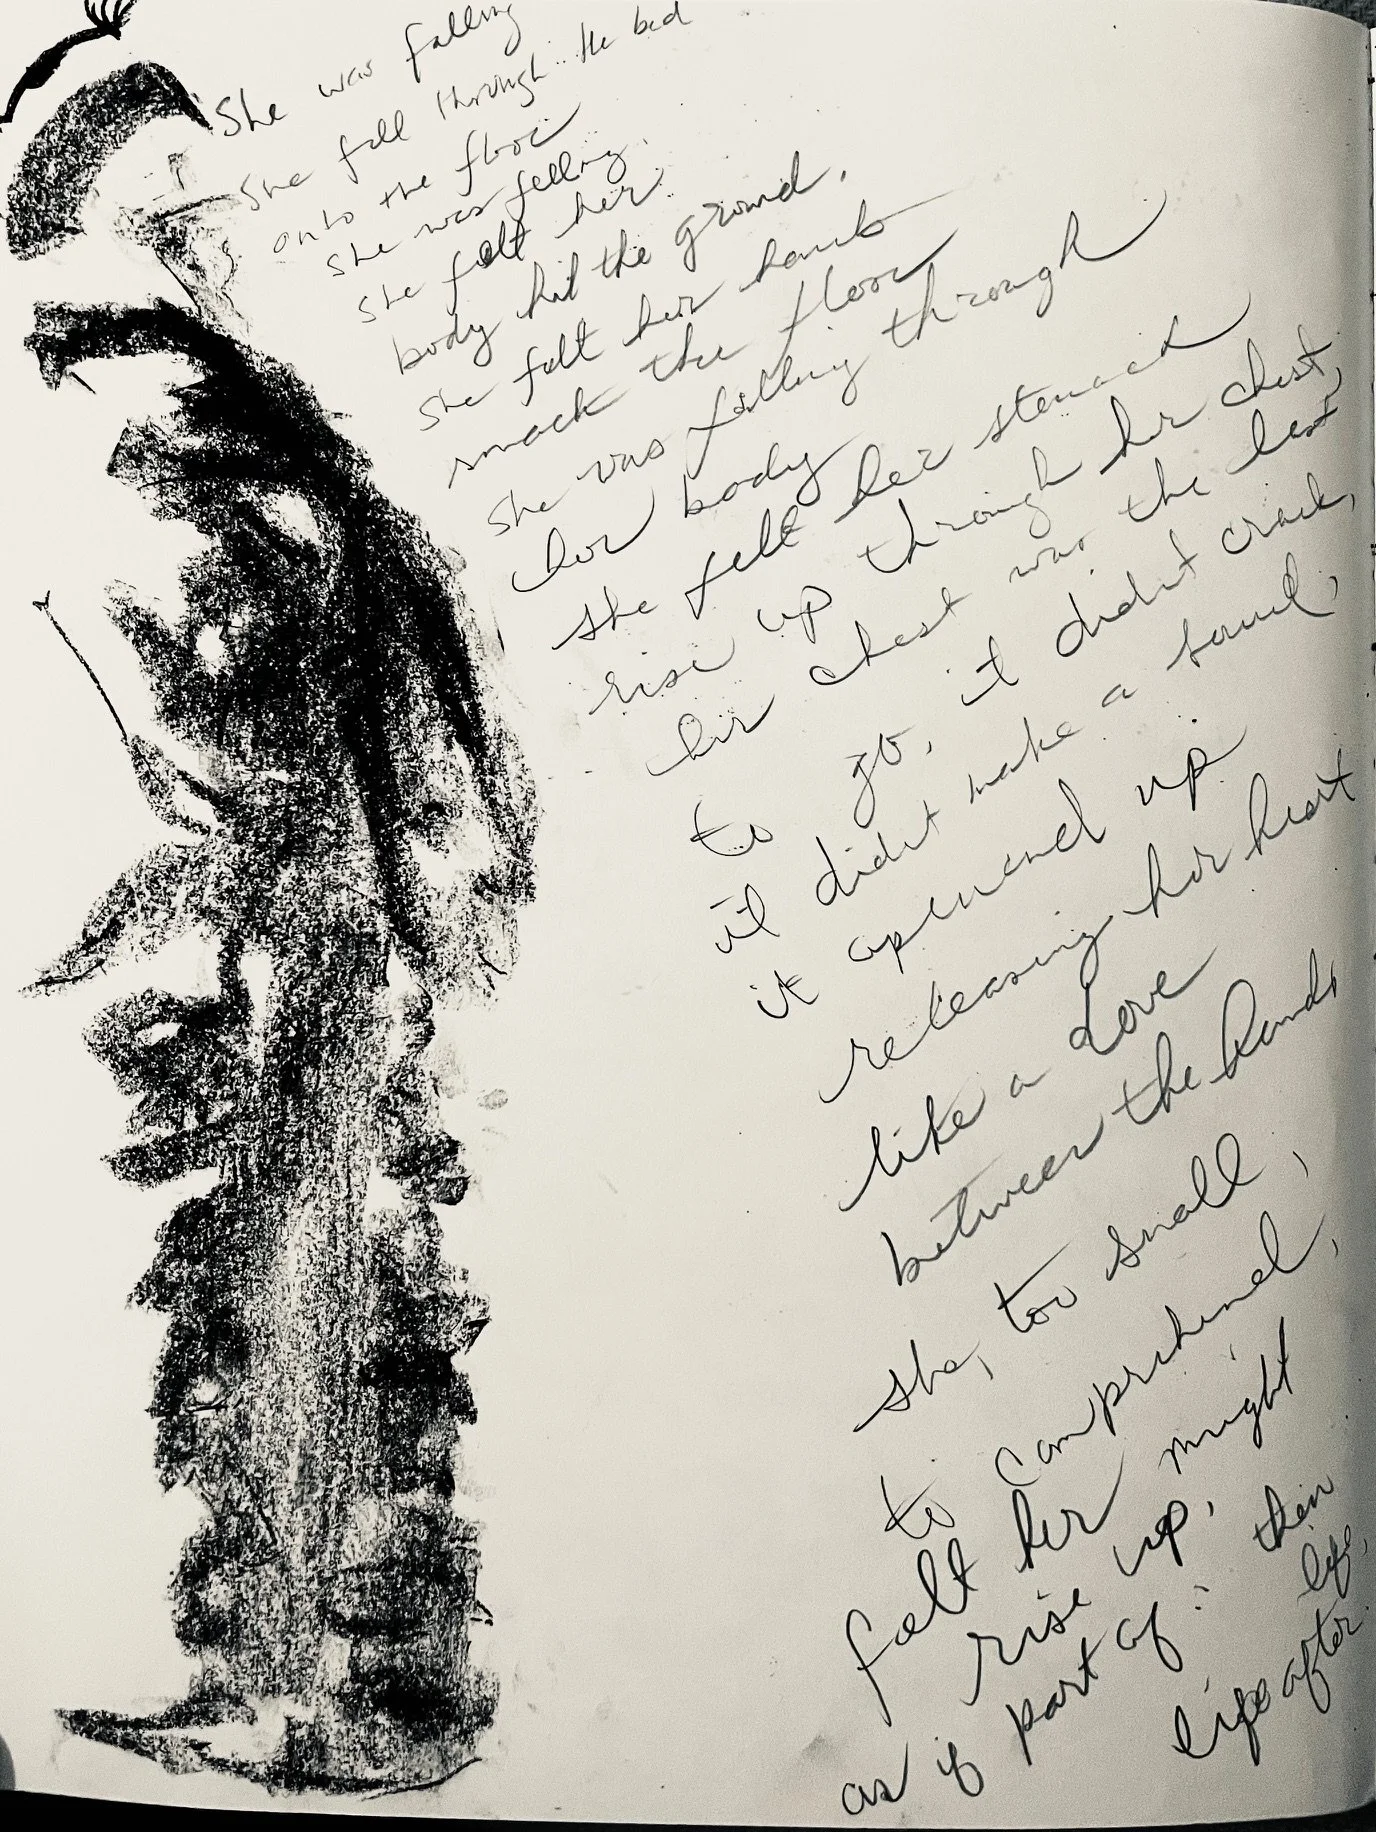 She was falling
She fell through the bed
onto the floor
She was falling.
She felt her
body hit the ground.
She felt her hands
smack the floor
She was falling through
her body
She felt her stomach
rise up through her chest,
her chest was the last
to go, it didn't crack,
it didn't make a sound,
it opened up
releasing her heart
like a Dove
between the hands
she, too small,
to comprehend,
felt her might
rise up,
as if part of: their
life,
life after.